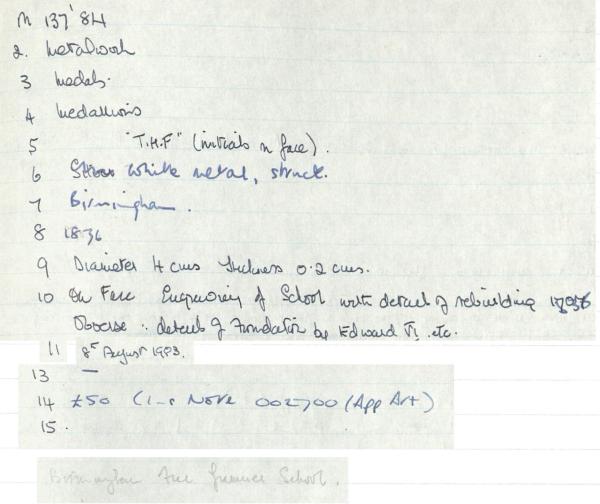 M 137'84
2. Metalwork
3 Medals.
4 Medallions
5 "T.H.F" (initials on face).
6 white metal, struck.
7 Birmingham.
8 1836
9 Diameter 4 cms Thickness 0.2 cms.
10 On Face Engraving of School with details of rebuilding
Obverse : details of Foundation by Edward VI. etc.
11 8th August 1983.
13 —
14 £50 Note 002700 (App Art)
15.
Birmingham School.